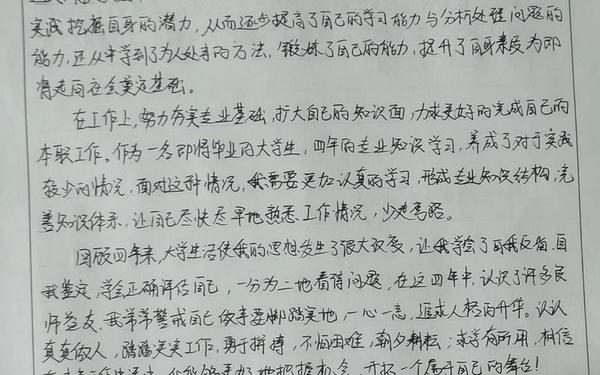 实践挖掘自身的潜力，从而逐步提高了自己的学习能力与分析处理问题的
能力，还从中学到了为人处事的方法，锻炼了自己的能力，提升了自身素质为即
将走向社会奠定基础。
在工作上，努力夯实专业基础，扩大自己的知识面，力求更好的完成自己的
本职工作。作为一名即将毕业的大学生，四年的专业知识学习，养成了对于实践
较少的情况，面对这种情况，我需要更加认真的学习，形成专业知识结构，完
善知识体系，让自己尽快尽早地熟悉工作情况，少走弯路。
回顾四年来，大学生活使我的思想发生了很大改变，让我学会了自我反省、自
我鉴定，学会正确评估自己，一分为二地看待问题，在这四年中，认识了许多良
师益友，我常常警戒自己做事要脚踏实地，一心一意，追求人格的升华。认认
真真做人，踏踏实实工作，勇于拼搏，不怕困难，朝夕耕耘；求学有所用，相信
更好地把握机会，开拓一个属于自己的舞台！